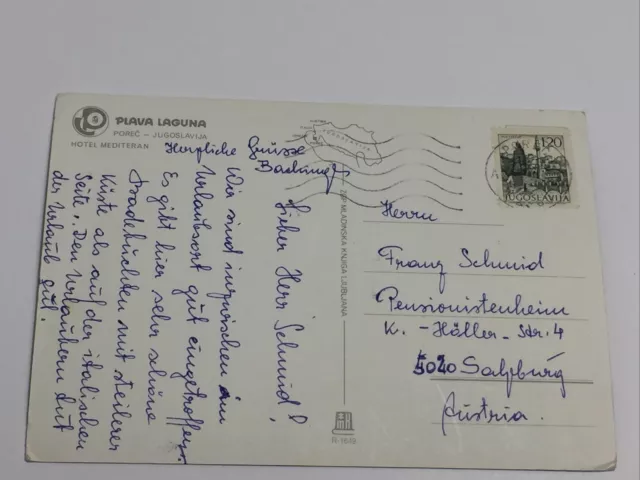 PLAVA LAGUNA
POREČ – JUGOSLAVIJA
HOTEL MEDITERAN
Lieber Herr Schmid!
Wir sind inzwischen am
Urlaubsort gut eingetroffen.
Es gibt hier sehr schöne
Badebuchten mit steilerer
Küste als auf der italischen
Seite. Den Urlaubern tut
der Urlaub gut.
Herzliche Grüsse
ZGP MLADINSKA KNJIGA LJUBLJANA
R-1649
1.20
JUGOSLAVIJA
Herrn
Franz Schmid
Pensionistenheim
K.-Höller-Str. 4
5020 Salzburg
Austria.